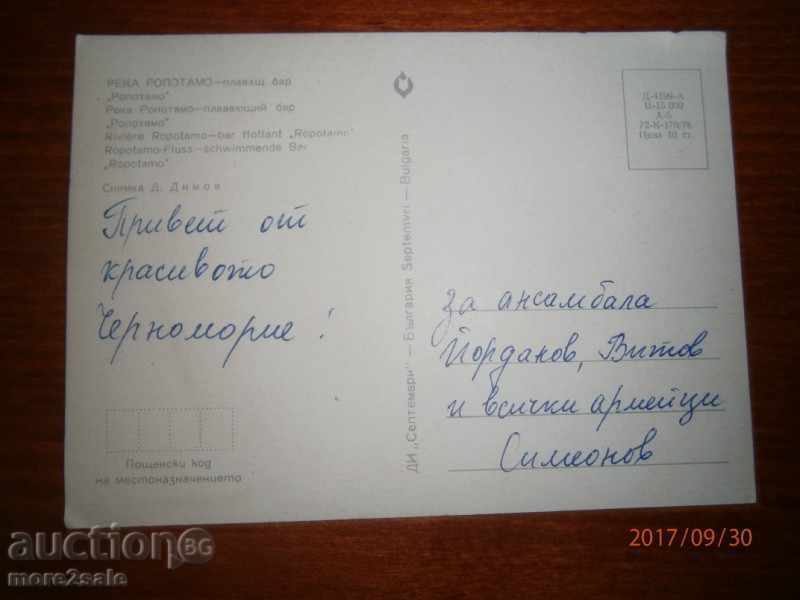 РЕКА РОПОТАМО—плаващ бар
„Ропотамо"
Река Ропотамо—плавающий бар
„Ропотамо"
Rivière Ropotamo—bar flottant „Ropotamo"
Ropotamo-Fluss—schwimmende Bar
„Ropotamo"
Снимка Д. Димов
Привет от
красивото
Черноморие!
Пощенски код
на местоназначението
ДИ „Септември" — България Septemvri — Bulgaria
72-К-178/76
Цена 10 ст.
за ансамбала
Йорданов, Витов
и всички армейци
Симеонов
2017/09/30
auction BG
more2sale